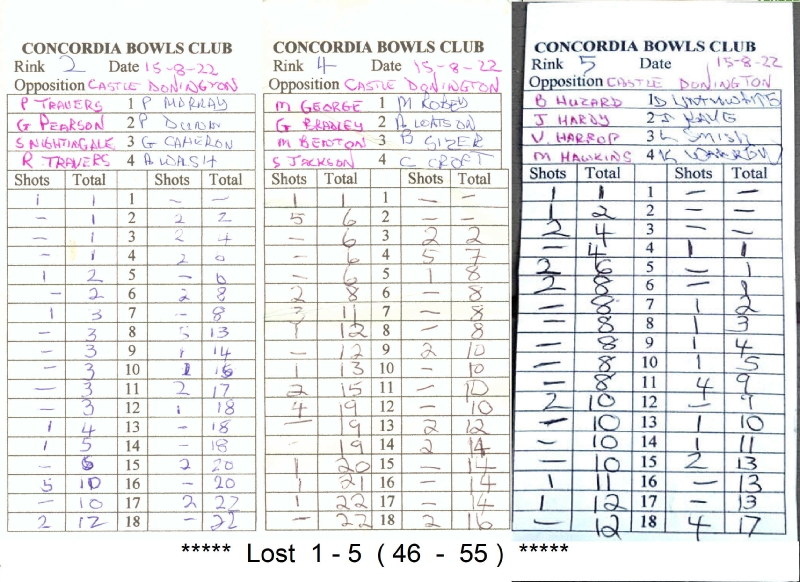 CONCORDIA BOWLS CLUB
Rink 2 Date 15-8-22
Opposition CASTLE DONINGTON
P TRAVERS 1 P MURRAY
G PEARSON 2 P
S NIGHTINGALE 3 G CAMERON
R TRAVERS 4 A WASH
Shots Total Shots Total
1 1 1 — —
— 1 2 2 2
— 1 3 2 4
— 1 4 2 6
1 2 5 — 6
— 2 6 2 8
1 3 7 — 8
— 3 8 5 13
— 3 9 1 14
— 3 10 1 15
— 3 11 2 17
— 3 12 1 18
1 4 13 — 18
1 5 14 — 18
— 5 15 2 20
5 10 16 — 20
— 10 17 2 22
2 12 18 — 22
CONCORDIA BOWLS CLUB
Rink 4 Date 15-8-22
Opposition CASTLE DONINGTON
M GEORGE 1 M ROBEY
G BRADLEY 2 A WATSON
M BENTON 3 B SIZER
S JACKSON 4 C CROFT
Shots Total Shots Total
1 1 1 — —
5 6 2 — —
— 6 3 2 2
— 6 4 5 7
— 6 5 1 8
2 8 6 — 8
3 11 7 — 8
1 12 8 — 8
— 12 9 2 10
1 13 10 — 10
2 15 11 — 10
4 19 12 — 10
— 19 13 2 12
— 19 14 2 14
1 20 15 — 14
1 21 16 — 14
1 22 17 — 14
— 22 18 2 16
CONCORDIA BOWLS CLUB
Rink 5 Date 15-8-22
Opposition CASTLE DONINGTON
B HUZARD 1 D
J HARDY 2 J
V HARROP 3 L SMISH
M HAWKINS 4 K
Shots Total Shots Total
1 1 1 — —
1 2 2 — —
2 4 3 — —
— 4 4 1 1
2 6 5 — 1
2 8 6 — 1
— 8 7 1 2
— 8 8 1 3
— 8 9 1 4
— 8 10 1 5
— 8 11 4 9
2 10 12 — 9
— 10 13 1 10
— 10 14 1 11
— 10 15 2 13
1 11 16 — 13
1 12 17 — 13
— 12 18 4 17
***** Lost 1 - 5 ( 46 - 55 ) *****